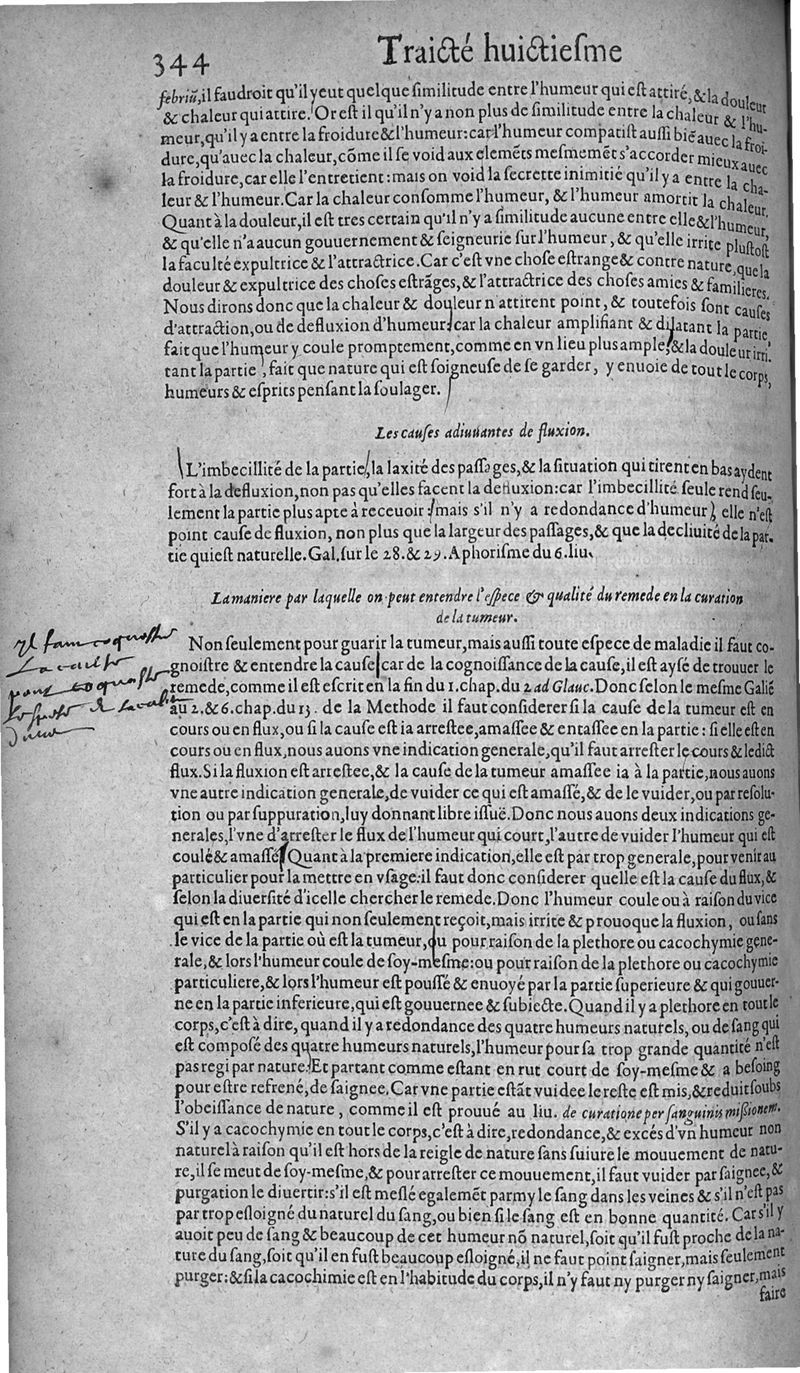 344
Traicté huictiesme
febriũ, il faudroit qu'il y eut quelque similitude entre l'humeur qui est attiré, & la douleur
& chaleur qui attire. Or est il qu'il n'y a non plus de similitude entre la chaleur & l'hu-
meur, qu'il y a entre la froidure & l'humeur: car l'humeur compatist aussi biẽ auec la froi-
dure, qu'auec la chaleur, cõme il se void aux elemẽts mesmemẽt s'accorder mieux auec
la froidure, car elle l'entretient: mais on void la secrette inimitié qu'il y a entre la cha-
leur & l'humeur. Car la chaleur consomme l'humeur, & l'humeur amortit la chaleur.
Quant à la douleur, il est tres certain qu'il n'y a similitude aucune entre elle & l'humeur,
& qu'elle n'a aucun gouuernement & seigneurie sur l'humeur, & qu'elle irrite plustost
la faculté expultrice & l'attractrice. Car c'est vne chose estrange & contre nature, que la
douleur & expultrice des choses estrãges, & l'attractrice des choses amies & familieres.
Nous dirons donc que la chaleur & douleur n'attirent point, & toutefois sont causes
d'attraction, ou de defluxion d'humeur: car la chaleur amplifiant & dilatant la partie
fait que l'humeur y coule promptement, comme en vn lieu plus ample, & la douleur irri-
tant la partie, fait que nature qui est soigneuse de se garder, y enuoie de tout le corps,
humeurs & esprits pensant la soulager.
Les causes adiuuantes de fluxion.
L'imbecillité de la partie, la laxité des passages, & la situation qui tirent en bas aydent
fort à la defluxion, non pas qu'elles facent la defluxion: car l'imbecillité seule rend seu-
lement la partie plus apte à receuoir: mais s'il n'y a redondance d'humeur, elle n'est
point cause de fluxion, non plus que la largeur des passages, & que la decliuité de la par-
tie qui est naturelle. Gal. sur le 28. & 29. Aphorisme du 6. liu.
La maniere par laquelle on peut entendre l'espece & qualité du remede en la curation
de la tumeur.
Non seulement pour guarir la tumeur, mais aussi toute espece de maladie il faut co-
gnoistre & entendre la cause, car de la cognoissance de la cause, il est aysé de trouuer le
remede, comme il est escrit en la fin du 1. chap. du 2. ad Glauc. Donc selon le mesme Galiẽ
au 2. & 6. chap. du 13. de la Methode il faut considerer si la cause de la tumeur est en
cours ou en flux, ou si la cause est ia arrestee, amassee & entassee en la partie: si elle est en
cours ou en flux, nous auons vne indication generale, qu'il faut arrester le cours & ledict
flux. Si la fluxion est arrestee, & la cause de la tumeur amassee ia à la partie, nous auons
vne autre indication generale, de vuider ce qui est amassé, & de le vuider, ou par resolu-
tion ou par suppuration, luy donnant libre issuë. Donc nous auons deux indications ge-
nerales, l'vne d'arrester le flux de l'humeur qui court, l'autre de vuider l'humeur qui est
coulé & amassé. Quant à la premiere indication, elle est par trop generale, pour venir au
particulier pour la mettre en vsage: il faut donc considerer quelle est la cause du flux, &
selon la diuersité d'icelle chercher le remede. Donc l'humeur coule ou à raison du vice
qui est en la partie qui non seulement reçoit, mais irrite & prouoque la fluxion, ou sans
le vice de la partie où est la tumeur, ou pour raison de la plethore ou cacochymie gene-
rale, & lors l'humeur coule de soy-mesme: ou pour raison de la plethore ou cacochymie
particuliere, & lors l'humeur est poussé & enuoyé par la partie superieure & qui gouuer-
ne en la partie inferieure, qui est gouuernee & subiecte. Quand il y a plethore en tout le
corps, c'est à dire, quand il y a redondance des quatre humeurs naturels, ou de sang qui
est composé des quatre humeurs naturels, l'humeur pour sa trop grande quantité n'est
pas regi par nature. Et partant comme estant en rut court de soy-mesme & a besoing
pour estre refrené, de saignee. Car vne partie estãt vuidee le reste est mis, & reduit soubs
l'obeissance de nature, comme il est prouué au liu. de curatione per sanguinis missionem.
S'il y a cacochymie en tout le corps, c'est à dire, redondance, & excés d'vn humeur non
naturel à raison qu'il est hors de la reigle de nature sans suiure le mouuement de natu-
re, il se meut de soy-mesme, & pour arrester ce mouuement, il faut vuider par saignee, &
purgation le diuertir: s'il est meslé egalemẽt parmy le sang dans les veines & s'il n'est pas
par trop esloigné du naturel du sang, ou bien si le sang est en bonne quantité. Car s'il y
auoit peu de sang & beaucoup de cet humeur nõ naturel, soit qu'il fust proche de la na-
ture du sang, soit qu'il en fust beaucoup esloigné, il ne faut point saigner, mais seulement
purger: & si la cacochimie est en l'habitude du corps, il n'y faut ny purger ny saigner, mais
faire